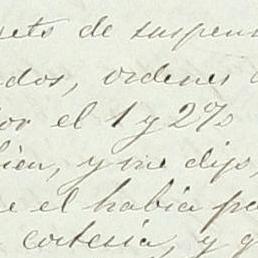 de suspen
dos, ordenes
or el 1 y 2%
bien, y me dijo,
e el habia pa
cortesia, y q